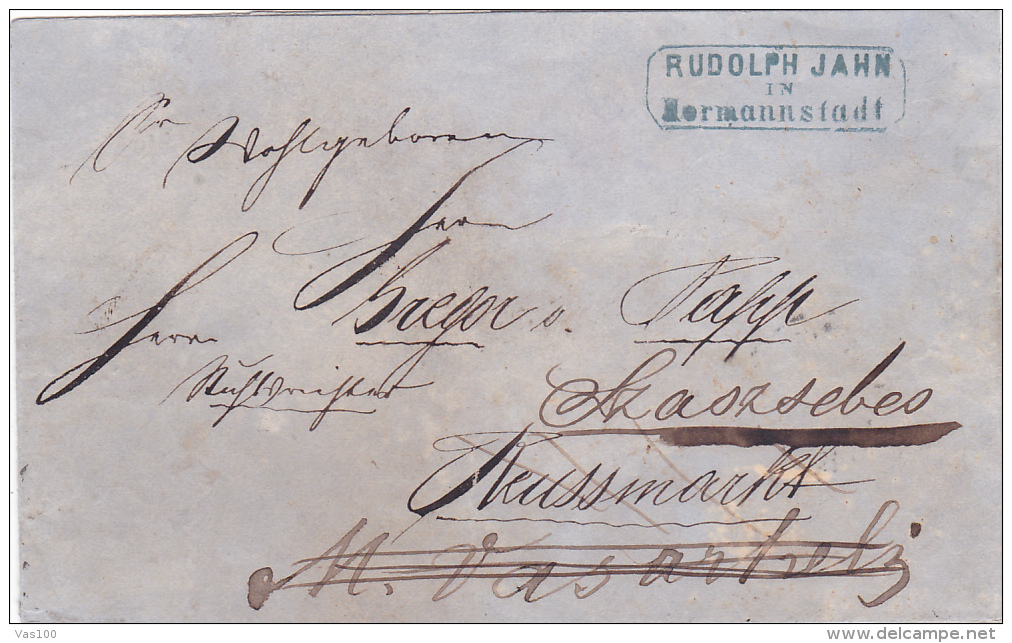 RUDOLPH JAHN
IN
Hermannstadt
Sr
Wohlgeboren
Herrn
Herrn
Gregor v. Papp
Stuhlrichter
Szaszsebes
Reussmarkt
M. Vasarhely
Vas100
delcampe.net